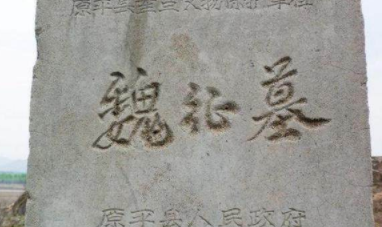 原平县重点文物保护单位
魏征墓
原平县人民政府